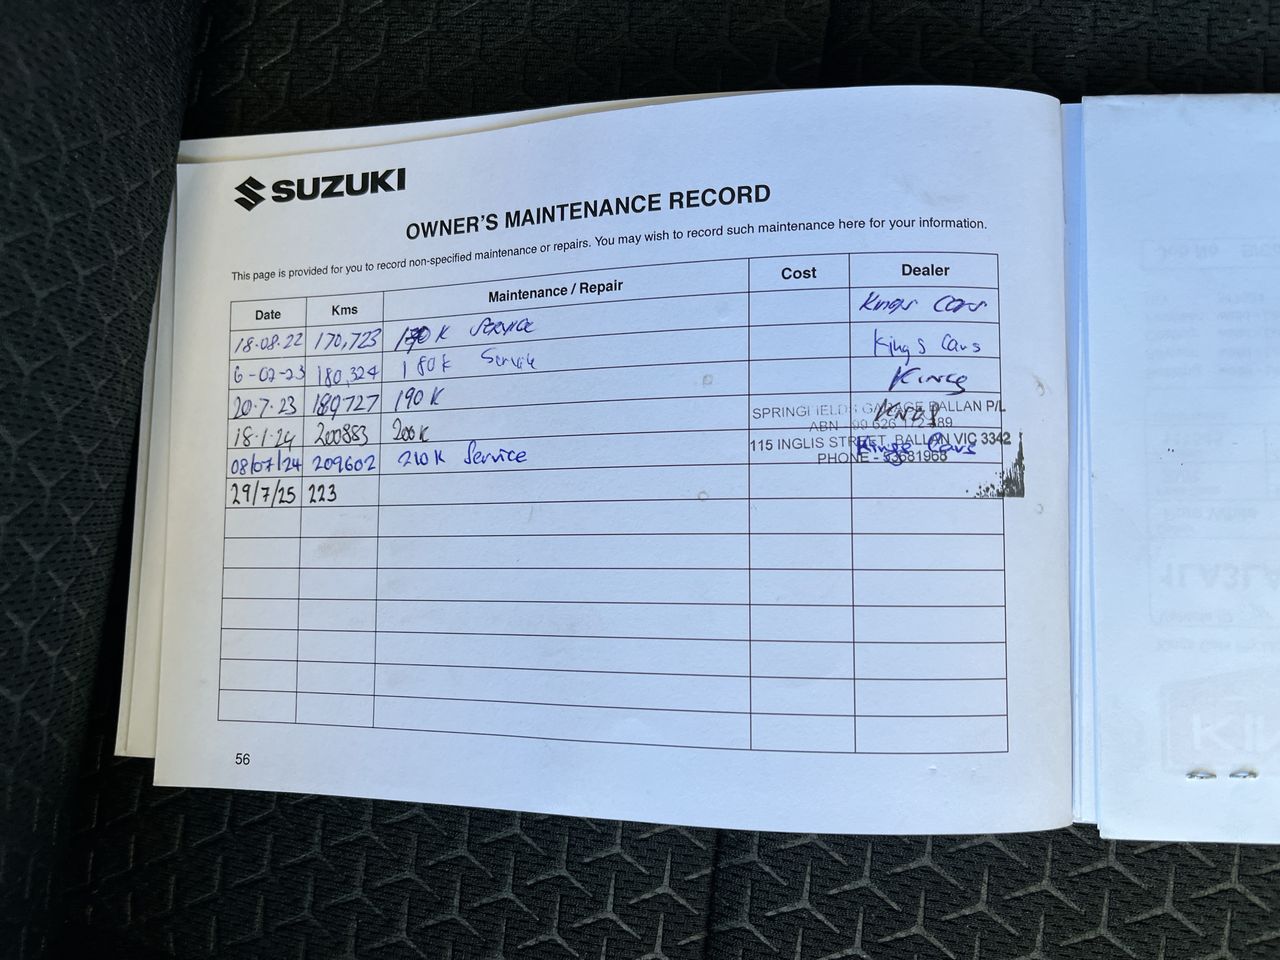 SUZUKI
OWNER'S MAINTENANCE RECORD
This page is provided for you to record non-specified maintenance or repairs. You may wish to record such maintenance here for your information.
Date Kms Maintenance / Repair Cost Dealer
18.08.22 170,723 170K SERVICE Kings Cars
6-02-23 180,324 180K Service Kings Cars
20.7.23 189727 190K Kings
18.1.24 200883 200K Kings
SPRINGFIELDS GARAGE BALLAN P/L
ABN 99 626 172 489
08/07/24 209602 210K Service Kings Cars
115 INGLIS STREET, BALLAN VIC 3342
PHONE - 53681968
29/7/25 223
56